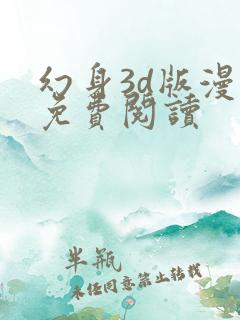 幻身3d版漫
免費閱讀
半瓶
未经同意禁止转载